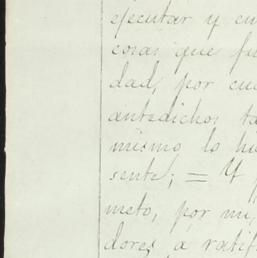 ejecutar y cu
cosas que fu
dad, por cu
antedichos ta
mismo lo hu
sente; = Y
meto, por mi,
dores á ratif